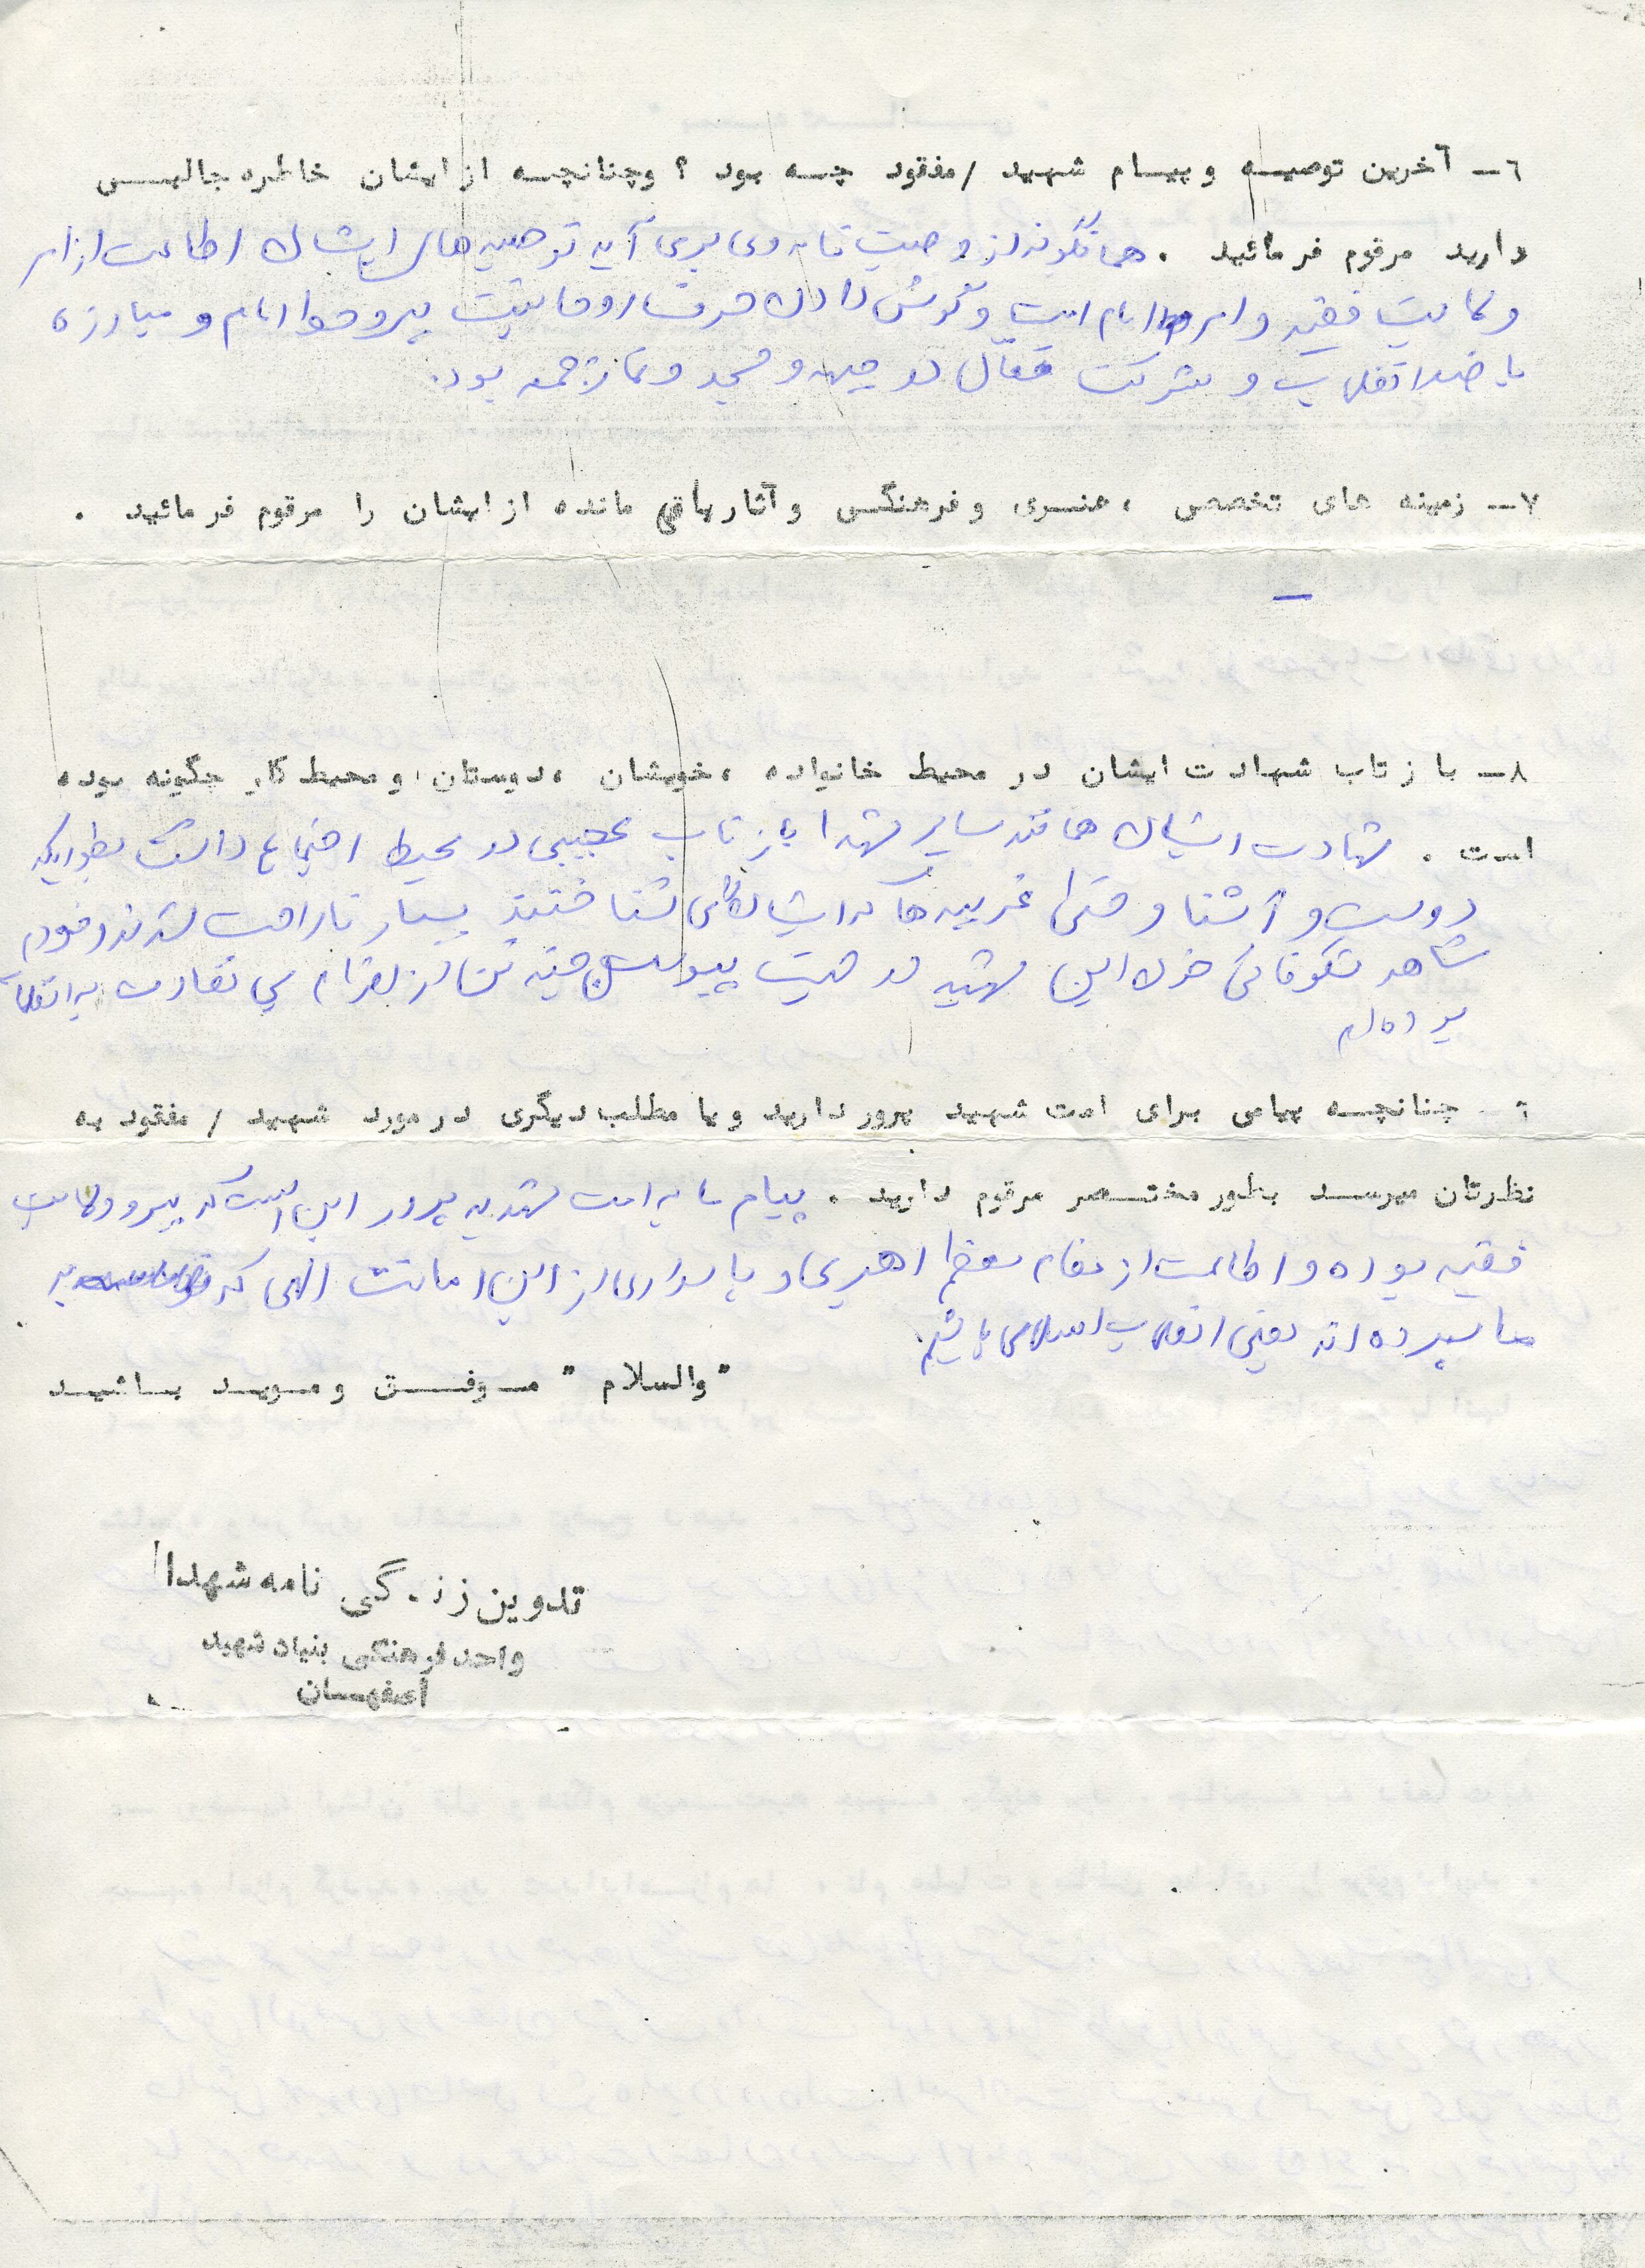 ٦ــ آخرین توصیـه و پیـام شهید /مفقود چـه بود ؟ وچنانچـه از ایشان خاطره جالبـی
دارید مرقوم فرمائید . همانگونه از وصیت نامه وی برمی آید توصیه های ایشان اطاعت از امر
ولایت فقیه و امر امام امت و گوش دادن حرف روحانیت پیرو خط امام و مبارزه
با ضد انقلاب و شرکت فعال در جبهه و مسجد و نماز جمعه بود.
٧ــ زمینه های تخصصی ، هنـری و فرهنگـی و آثار باقی مانده از ایشان را مرقوم فرمائید .
—
٨ــ بازتاب شهادت ایشان در محیط خانواده ، خویشان ، دوستان ، و محیط کار چگونه بوده
است . شهادت ایشان مانند سایر شهدا بازتاب عجیبی در محیط اجتماع داشت بطوریکه
دوست و آشنا و حتی غریبه ها که ایشان را می شناختند بسیار ناراحت شدند و خودم
شاهد شکوفائی خون این شهید در جهت پیوستن چند تن از افراد بی تفاوت به انقلاب
بوده ام
٩ــ چنانچـه پیامی برای امت شهید پرور دارید و یا مطلب دیگری در مورد شهید / مفقود به
نظرتان میرسـد بطور مختـصر مرقوم دارید . پیام ما به امت شهید پرور این است که پیرو ولایت
فقیه بوده و اطاعت از مقام معظم رهبری و پاسداری از این امانت الهی که به
ما سپرده اند یعنی انقلاب اسلامی باشیم.
"والسلام" مـوفـق و مـویـد بـاشیـد
تدوین زندگی نامه شهدا
واحد فرهنگی بنیاد شهید
اصفهـان